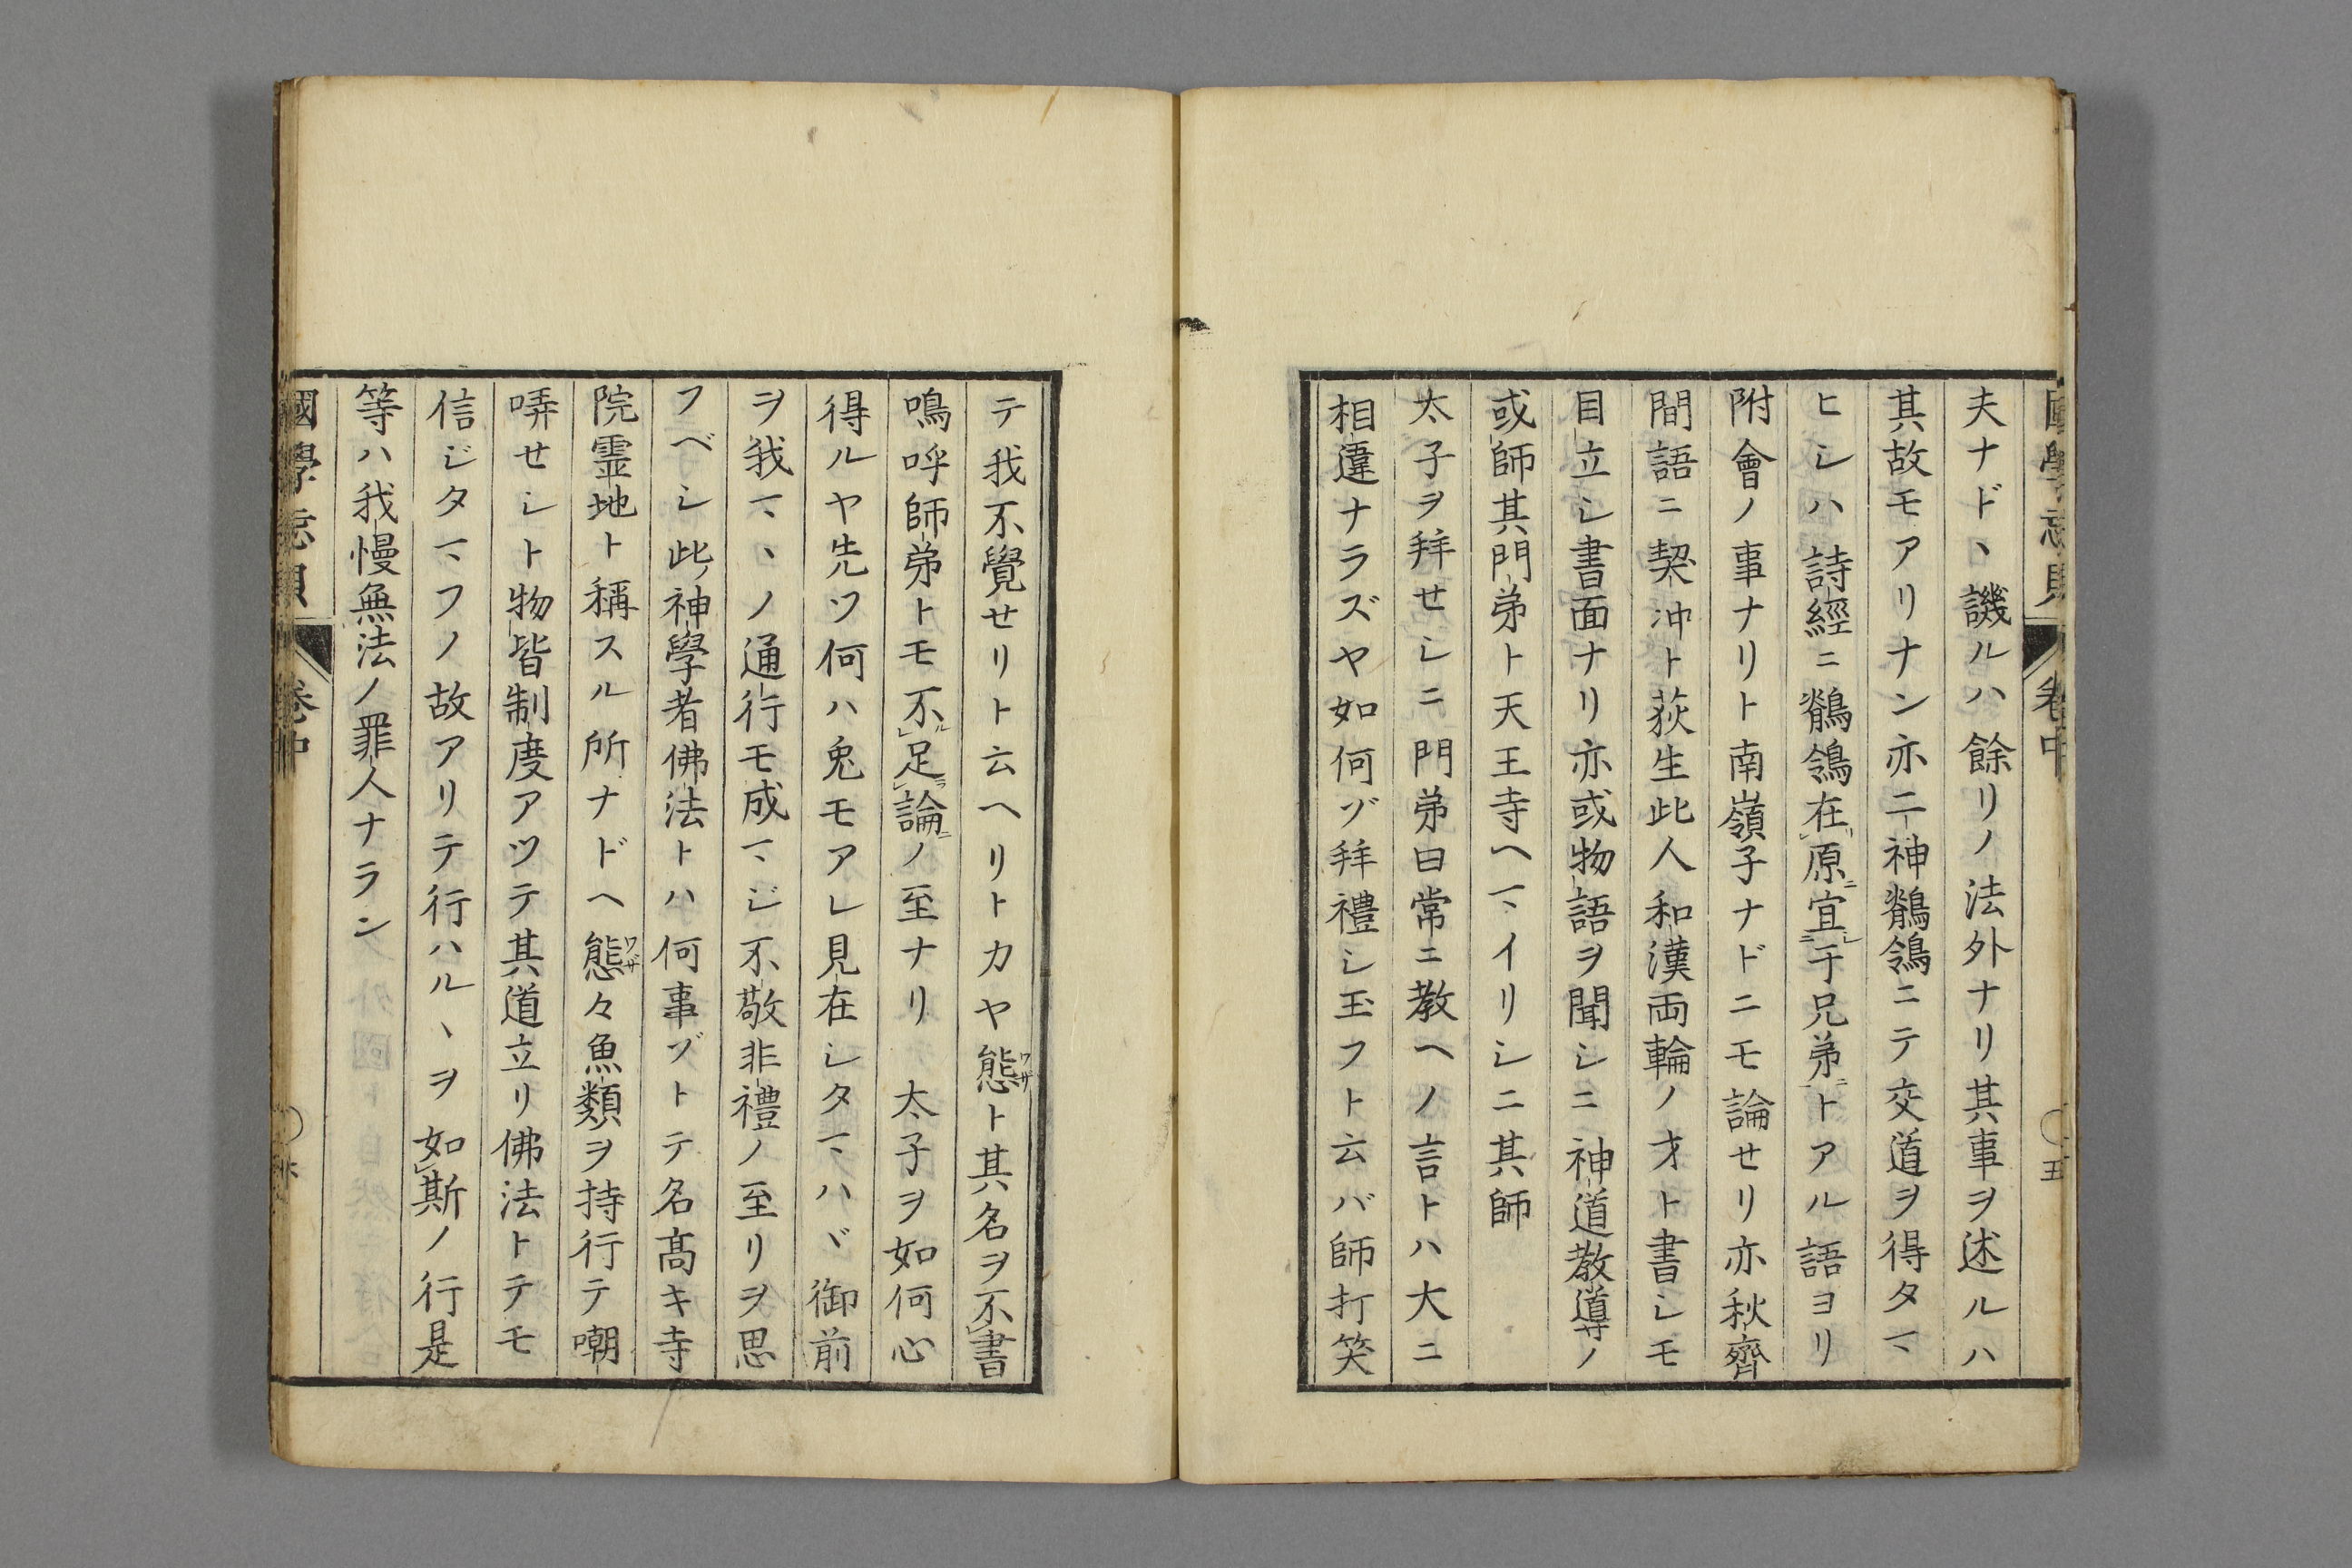 夫ナドヽ譏ルハ餘リノ法外ナリ其事ヲ述ルハ
其故モアリナン亦二神鶺鴒ニテ交道ヲ得タマ
ヒシハ詩經ニ鶺鴒在原宜于兄弟トアル語ヨリ
附會ノ事ナリト南嶺子ナドニモ論セリ亦秋齊
間語ニ契冲ト荻生此人和漢両輪ノ才ト書シモ
目立シ書面ナリ亦或物語ヲ聞シニ神道教導ノ
或師其門弟ト天王寺ヘマイリシニ其師
太子ヲ拜セシニ門弟曰常ニ教ヘノ言トハ大ニ
相違ナラズヤ如何ゾ拜禮シ玉フト云バ師打笑
テ我不覺せリト云ヘリトカヤ態ト其名ヲ不書
鳴呼師弟トモ不足論ノ至ナリ 太子ヲ如何心
得ルヤ先ツ何ハ兎モアレ見在シタマハヾ御前
ヲ我マヽノ通行モ成マジ不敬非禮ノ至リヲ思
フベシ此神學者佛法トハ何事ゾトテ名髙キ寺
院霊地ト稱スル所ナドヘ態々魚類ヲ持行テ嘲
哢せシト物皆制度アツテ其道立リ佛法トテモ
信ジタマフノ故アリテ行ハルヽヲ如斯ノ行是
等ハ我慢無法ノ罪人ナラン
國學忘貝 卷中